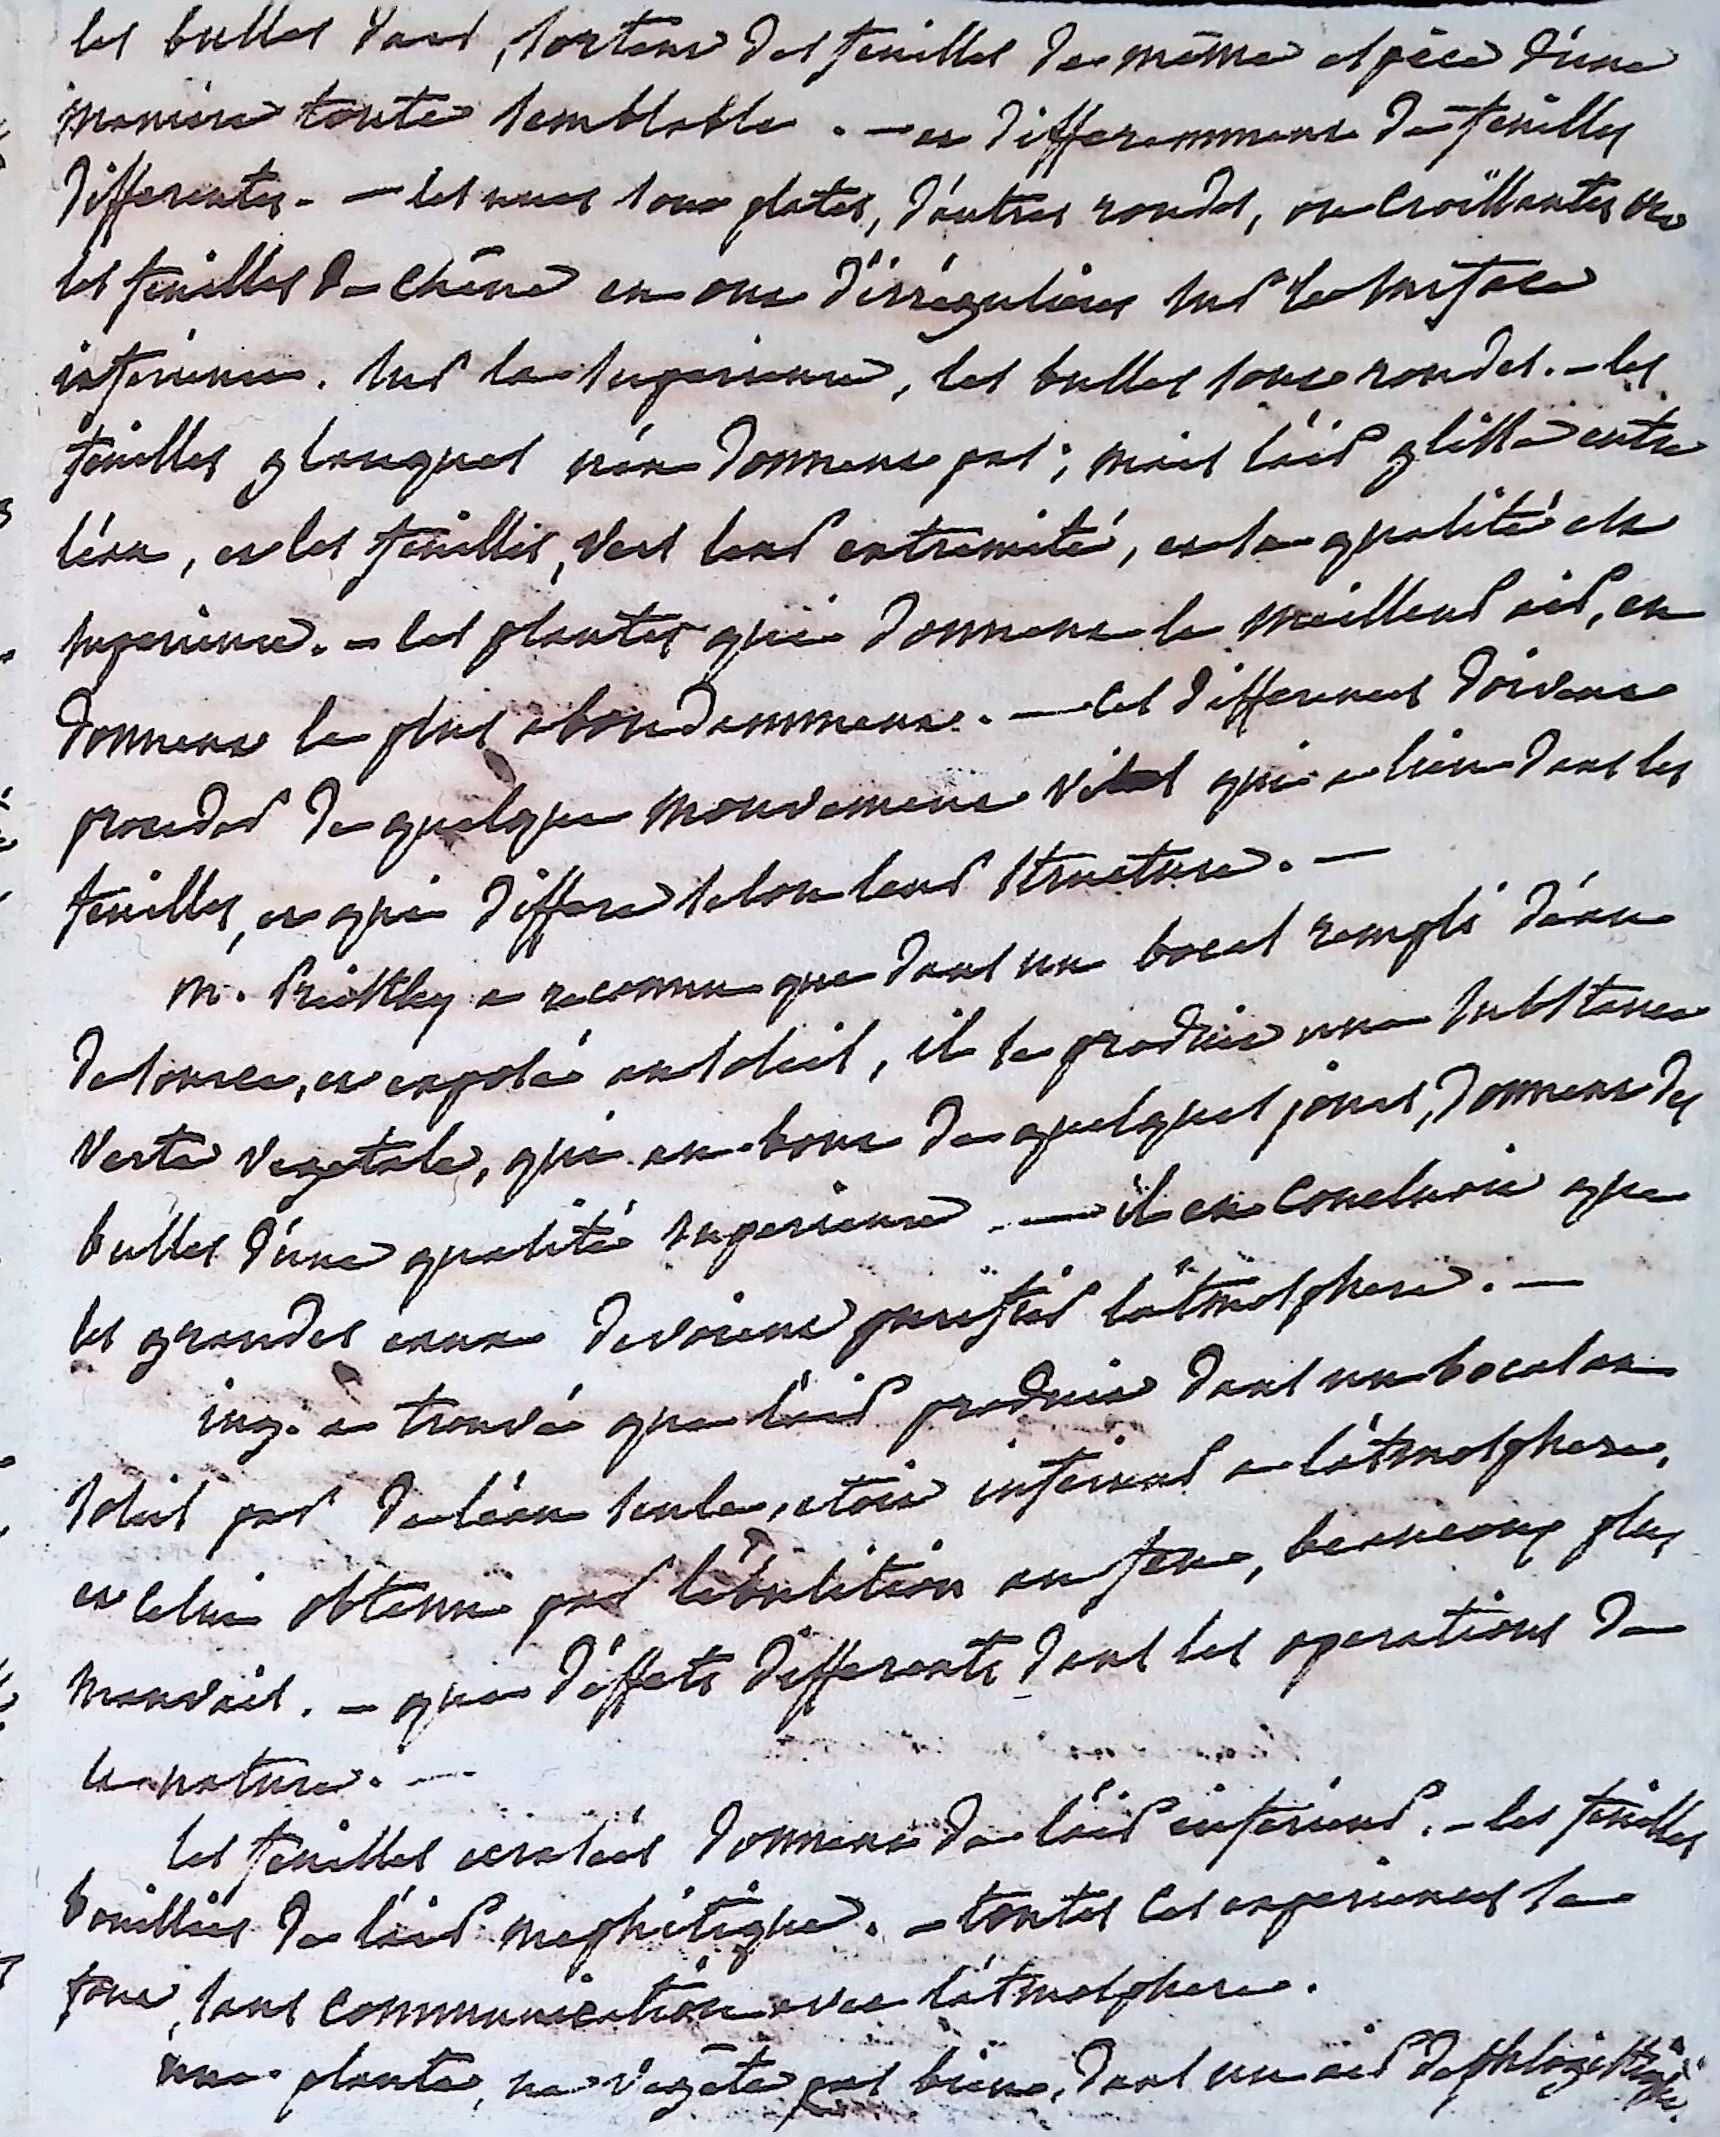 les bulles d'air, sortent des feuilles de même espèce d'une
maniere toute semblable. — et differemment de feuilles
differentes. — les unes sont plates, d'autres rondes, ou croissantes
les feuilles de chêne en ont d'irrégulieres sur la surface
inferieure. sur la superieure, les bulles sont rondes. — les
feuilles glauques n'en donnent pas; mais l'air glisse entre
l'eau, et les feuilles, vers leur extremité, et sa qualité est
superieure. — les plantes qui donnent le meilleur air, en
donnent le plus abondamment. — ces differences doivent
proceder de quelque mouvement vital qui a lieu dans les
feuilles, et qui differe selon leur structure. —
m. Priestley a reconnu que dans un bocal rempli d'eau
de source, et exposé au soleil, il se produit une substance
verte vegetale, qui au bout de quelques jours, donnent des
bulles d'une qualité superieure. — il en concluoit que
les grandes eaux devoient purifier l'atmosphere. —
ing. a trouvé que l'air produit dans un bocal au
soleil par de l'eau seule, etoit inferieur a l'atmosphere,
et celui obtenu par l'ébulition au feu, beaucoup plus
mauvais. — que d'éffets differents dans les operations de
la nature. —
les feuilles ecrasées donnent de l'air inferieur. — les feuilles
bouillies de l'air mephitique. — toutes ces experiences se
font, sans communication avec l'atmosphere.
une plante, ne végète pas bien, dans un air dephlogistiqué.